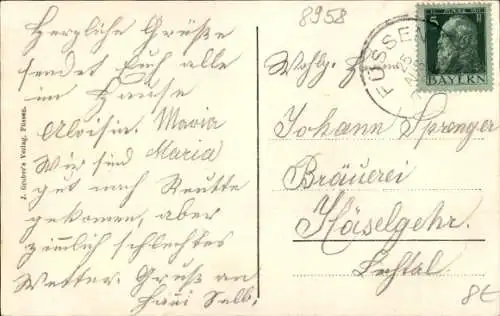 8958
Herzliche Grüße
sendet Euch alle
im Hause
Aloisia. Maria
Wir sind Maria
gut nach Reutte
gekommen, aber
ziemlich schlechtes
Wetter. Gruß an
Selb.
J. Gruber's Verlag, Füssen.
FÜSSEN
5
BAYERN
Wohlg. Herrn
Johann Sprenger
Bräuerei
Häselgehr.
Lechtal.
8€